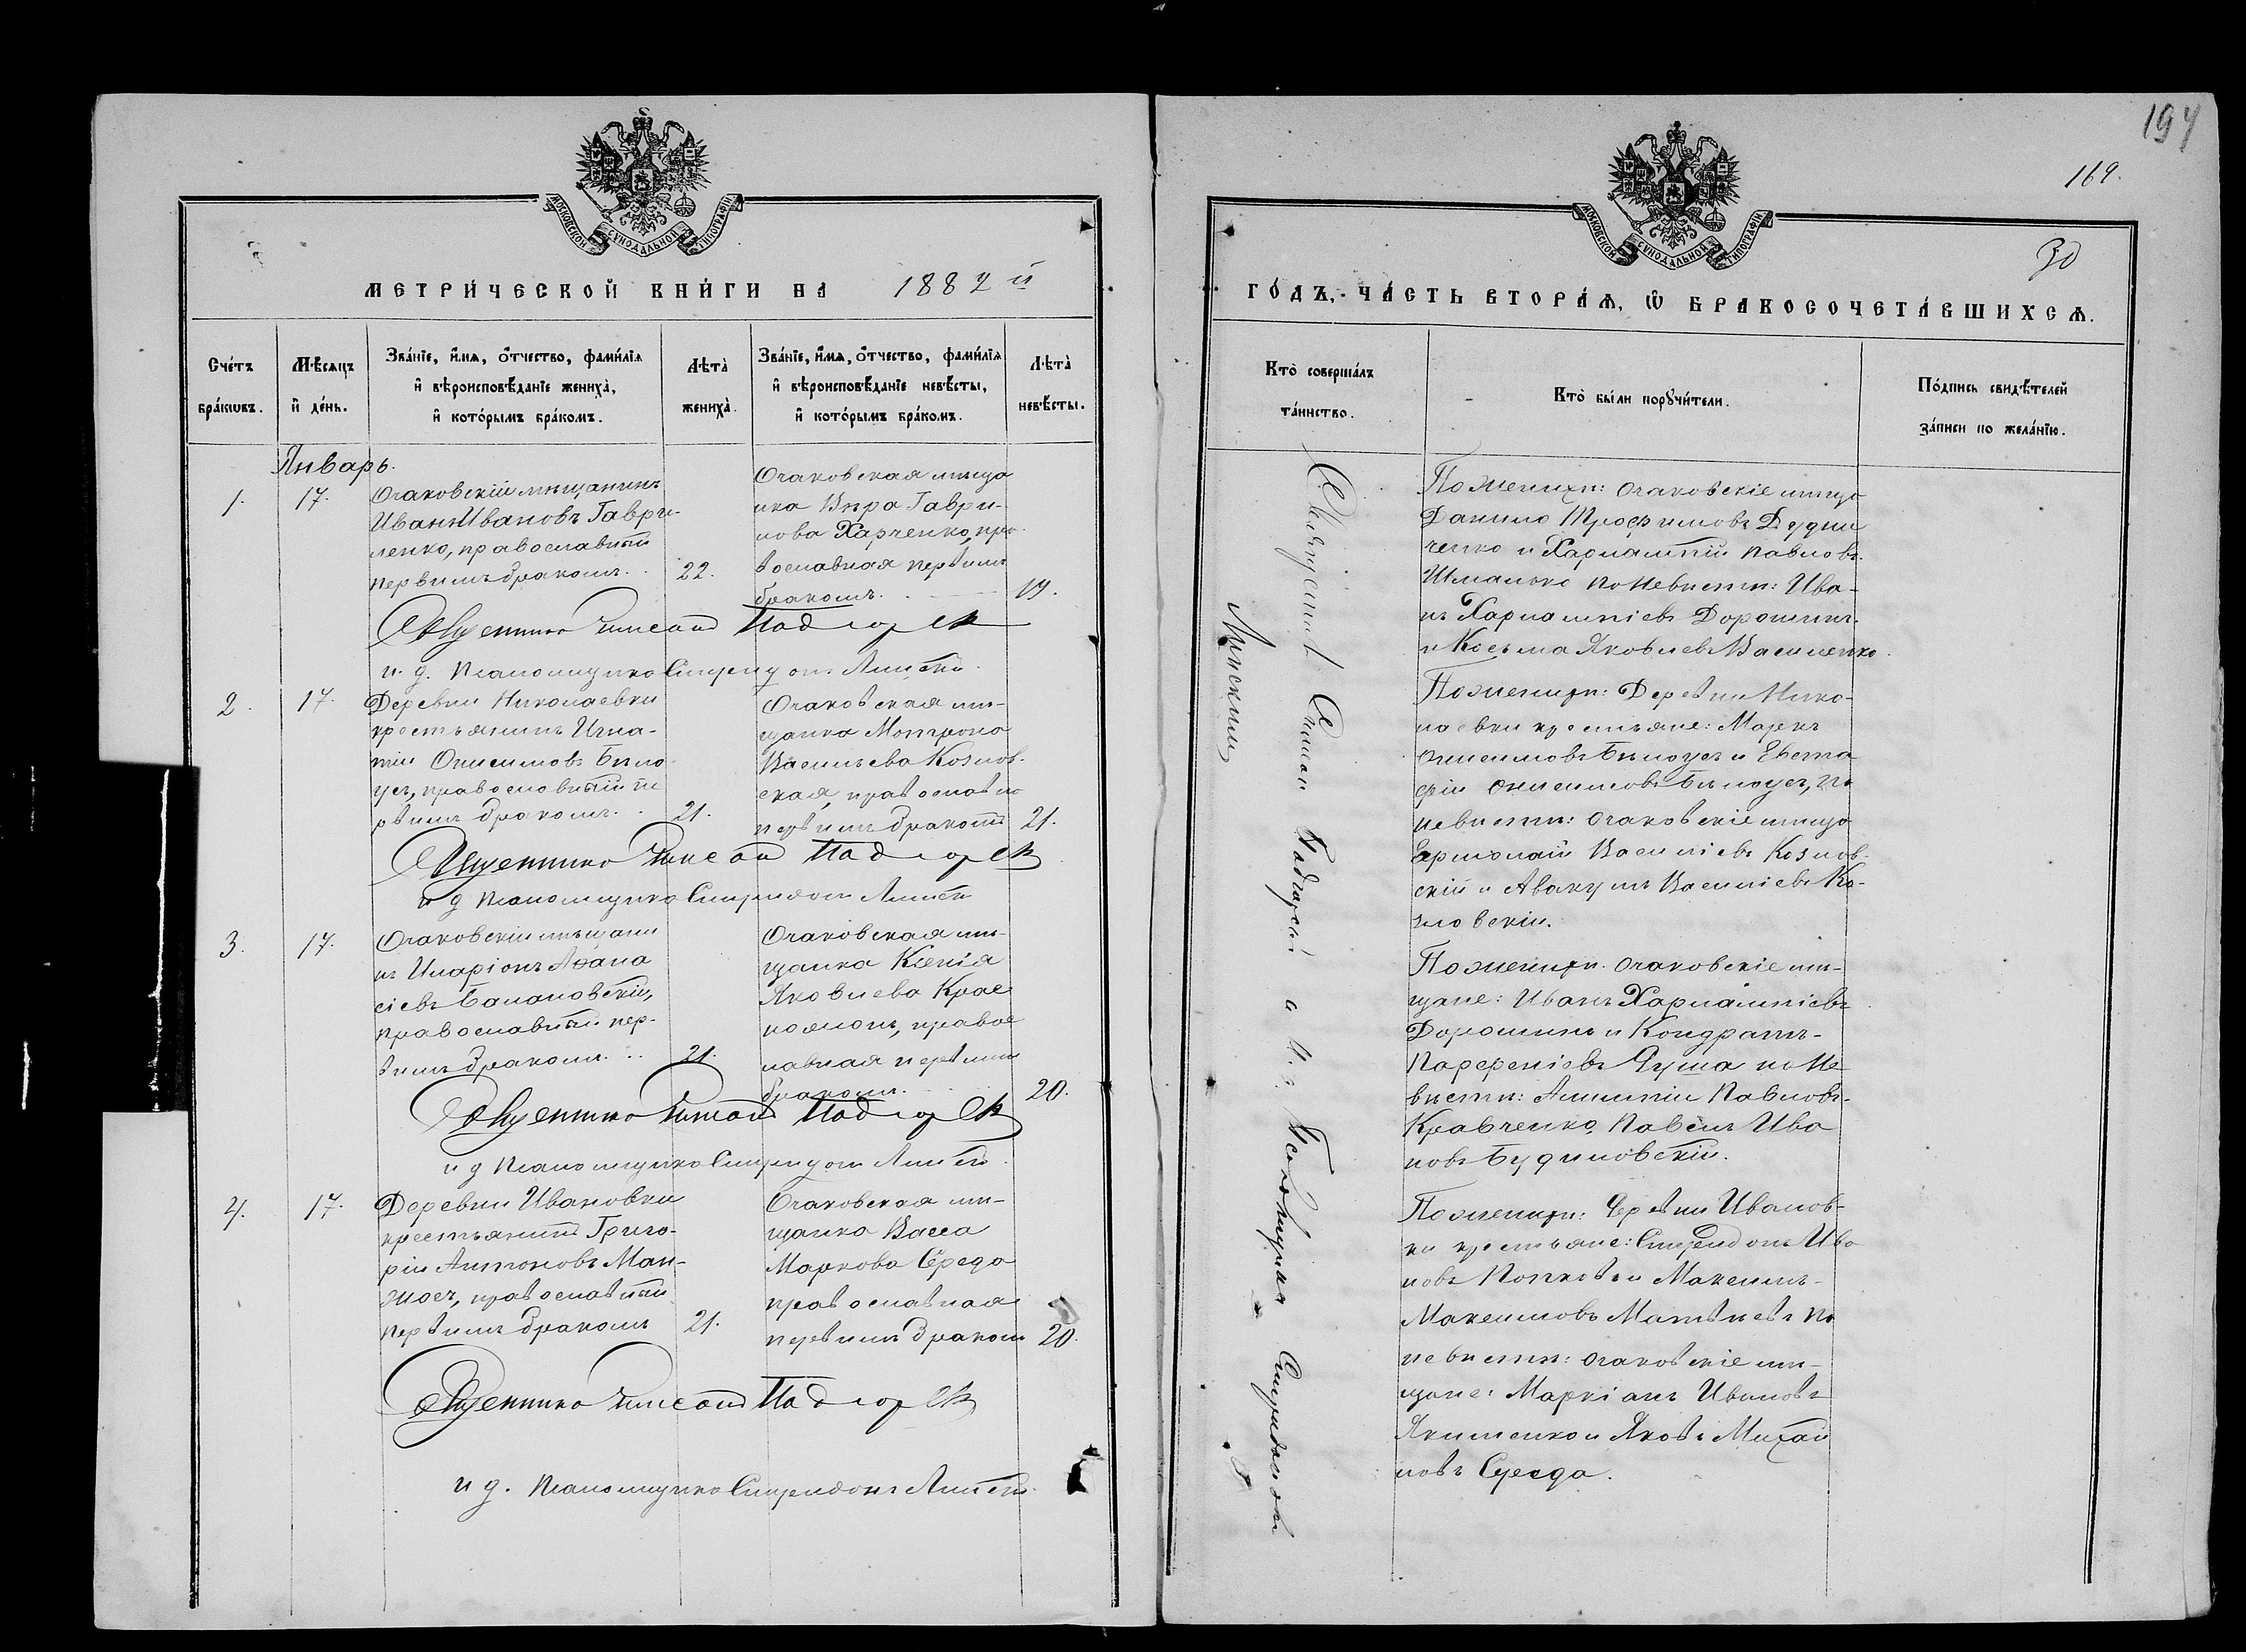 194
169.
30
МОСКОВСКОЙ СУНОДАЛЬНОЙ ТИПОГРАФІИ
МЕТРИ́ЧЕСКОЙ КНИ́ГИ НА 1882 й
Сче́тъ бра́кωвъ.
Мѣ́сяцъ и҆ де́нь.
Зва́нїе, и҆́мѧ, ѻ҆́тчество, фами́лїѧ
и҆ вѣроисповѣ́данїе жениха̀,
и҆ кото́рымъ бра́комъ.
Лѣта̀ жениха̀.
Зва́нїе, и҆́мѧ, ѻ҆́тчество, фами́лїѧ
и҆ вѣроисповѣ́данїе невѣ́сты,
и҆ кото́рымъ бра́комъ.
Лѣта̀ невѣ́сты.
Январь.
1.
17.
Очаковскій мѣщанинъ
Иванъ Ивановъ Гаври-
ленко, православный
первымъ бракомъ. .
22.
Очаковская мѣща
нка Вѣра Гаври-
лова Харченко, пра
вославная первым
бракомъ.
19.
Священникъ
и. д. Псаломщика Спиридонъ
2.
17.
Деревни Николаевки
крестьянинъ Игна-
тій Онисимовъ Бѣло
усъ, православный пе
рвымъ бракомъ. .
21.
Очаковская мѣ-
щанка Мотрона
Васильева Козлов-
ская, православна
первымъ бракомъ
21.
Священникъ
и д Псаломщика Спиридонъ
3.
17.
Очаковскій мѣщани
нъ Иларіонъ Аѳана
сіевъ Балановскій,
православный пер-
вымъ бракомъ. ..
21.
Очаковская мѣ-
щанка Ксенія
Яковлева Крас
ноямонъ, правос
лавная первымъ
бракомъ.
20.
Священникъ
и д Псаломщика Спиридонъ
4.
17.
Деревни Ивановки
крестьянинъ Григо-
рій Антоновъ Ман-
жосъ, православный
первымъ бракомъ
21.
Очаковская мѣ-
щанка Васса
Маркова Середа
православная
первымъ бракомъ
20.
Священникъ
и д. Псаломщика Спиридонъ
МОСКОВСКОЙ СУНОДАЛЬНОЙ ТИПОГРАФІИ
ГО́ДЪ, ЧА́СТЬ ВТОРА́Ѧ, Ѽ БРАКОСОЧЕТА́ВШИХСѦ.
Кто̀ соверша́лъ та́инство.
Кто̀ бы́ли порꙋчи́тели.
По́дпись свидѣ́телей
за́писи по жела́нїю.
Священникъ
Псаломщика Спиридонъ
По женихѣ: Очаковскіе мѣща
Данило Трофимовъ Дудни
ченко и Харлампій Павловъ
Шмалько По Невѣстѣ: Ива-
нъ Харлампіевъ Дорошинъ
и Косьма Яковлевъ Василенко.
По женихѣ: Деревни Нико-
лаевки крестьяне: Маркъ
Онисимовъ Бѣлоусъ и Евста
фій Онисимовъ Бѣлоусъ, По
невѣстѣ: Очаковскіе мѣща
Ермолай Василіевъ Козлов-
скій и Авакумъ Василіевъ Ко-
зловскій.
По женихѣ. Очаковскіе мѣ-
щане: Иванъ Харлампіевъ
Дорошинъ и Кондратъ-
Парфеніевъ Яуша по Не
вѣстѣ: Павловъ-
Кравченко, Павелъ Ива
новъ Будиловскій.
По женихѣ: Деревни Иванов-
ки крестьяне: Спиридонъ Ива
новъ и Максимъ-
Максимовъ Матвѣевъ По
невѣстѣ: Очаковскіе мѣ-
щане: Маркіанъ Ивановъ
Якименко и Яковъ Михай
ловъ Середа.